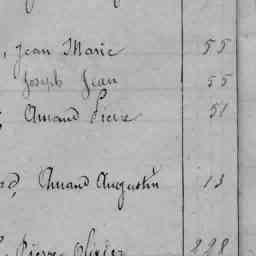 , Jean Marie 55
Joseph Jean 55
Amand Pierre 51
Amand Augustin 13
Pierre Olivier 898